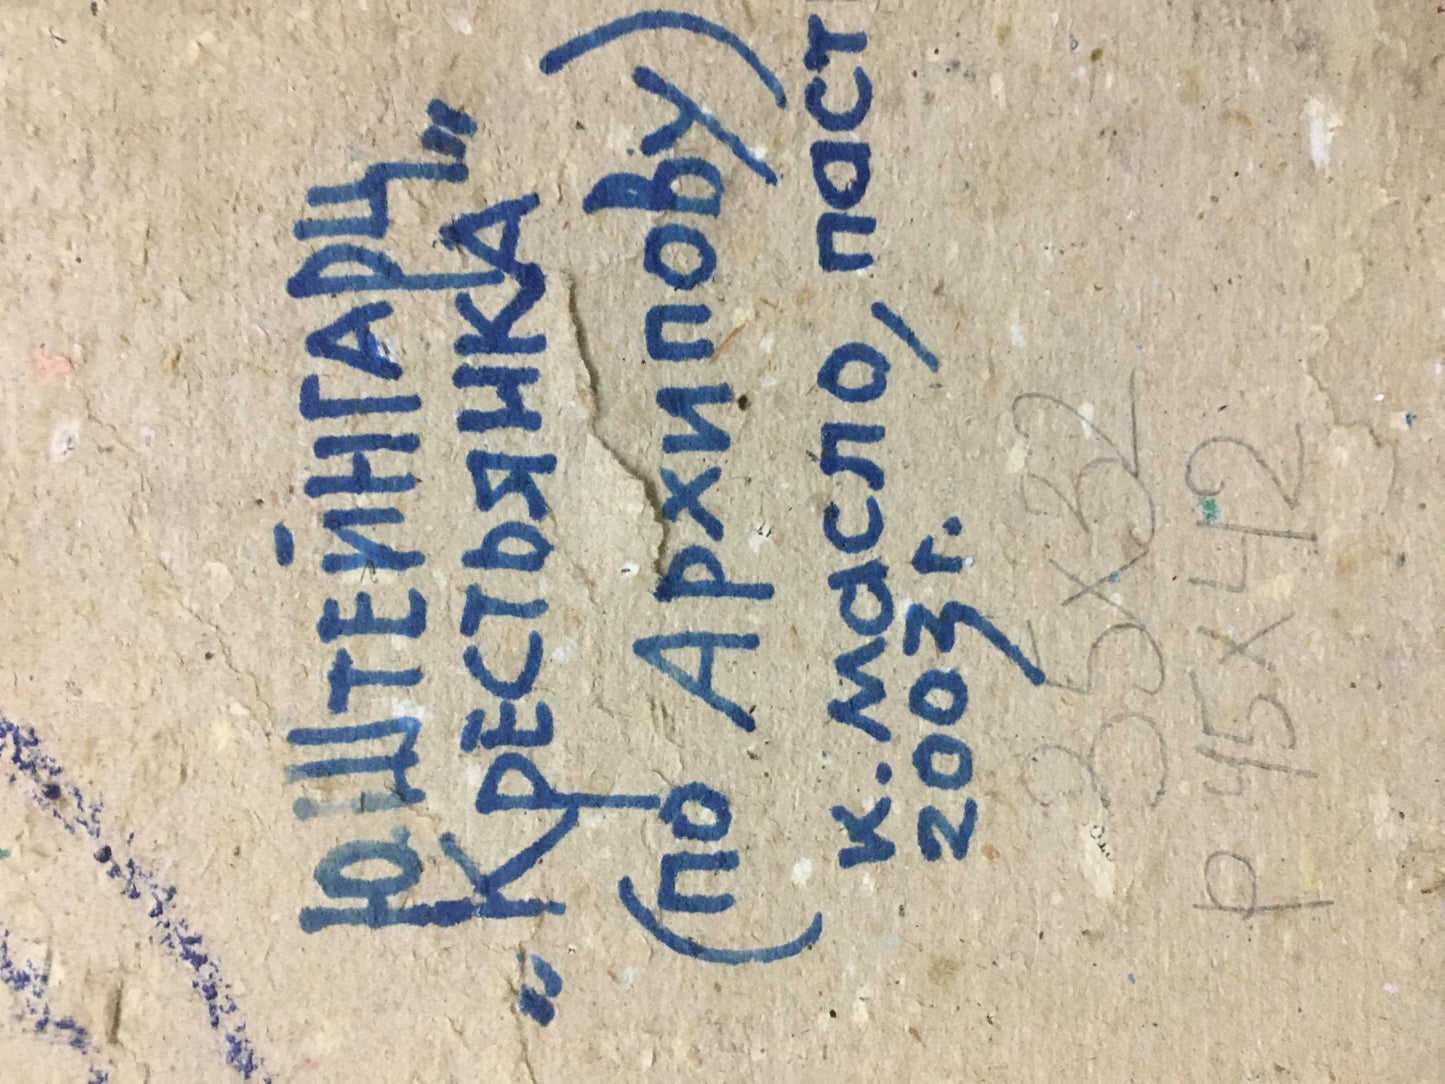 Ю.ШТЕЙНГАРЦ
„КРЕСТЬЯНКА"
(по Архипову)
к. масло, паст
2003 г.
35х32
Р 45х42